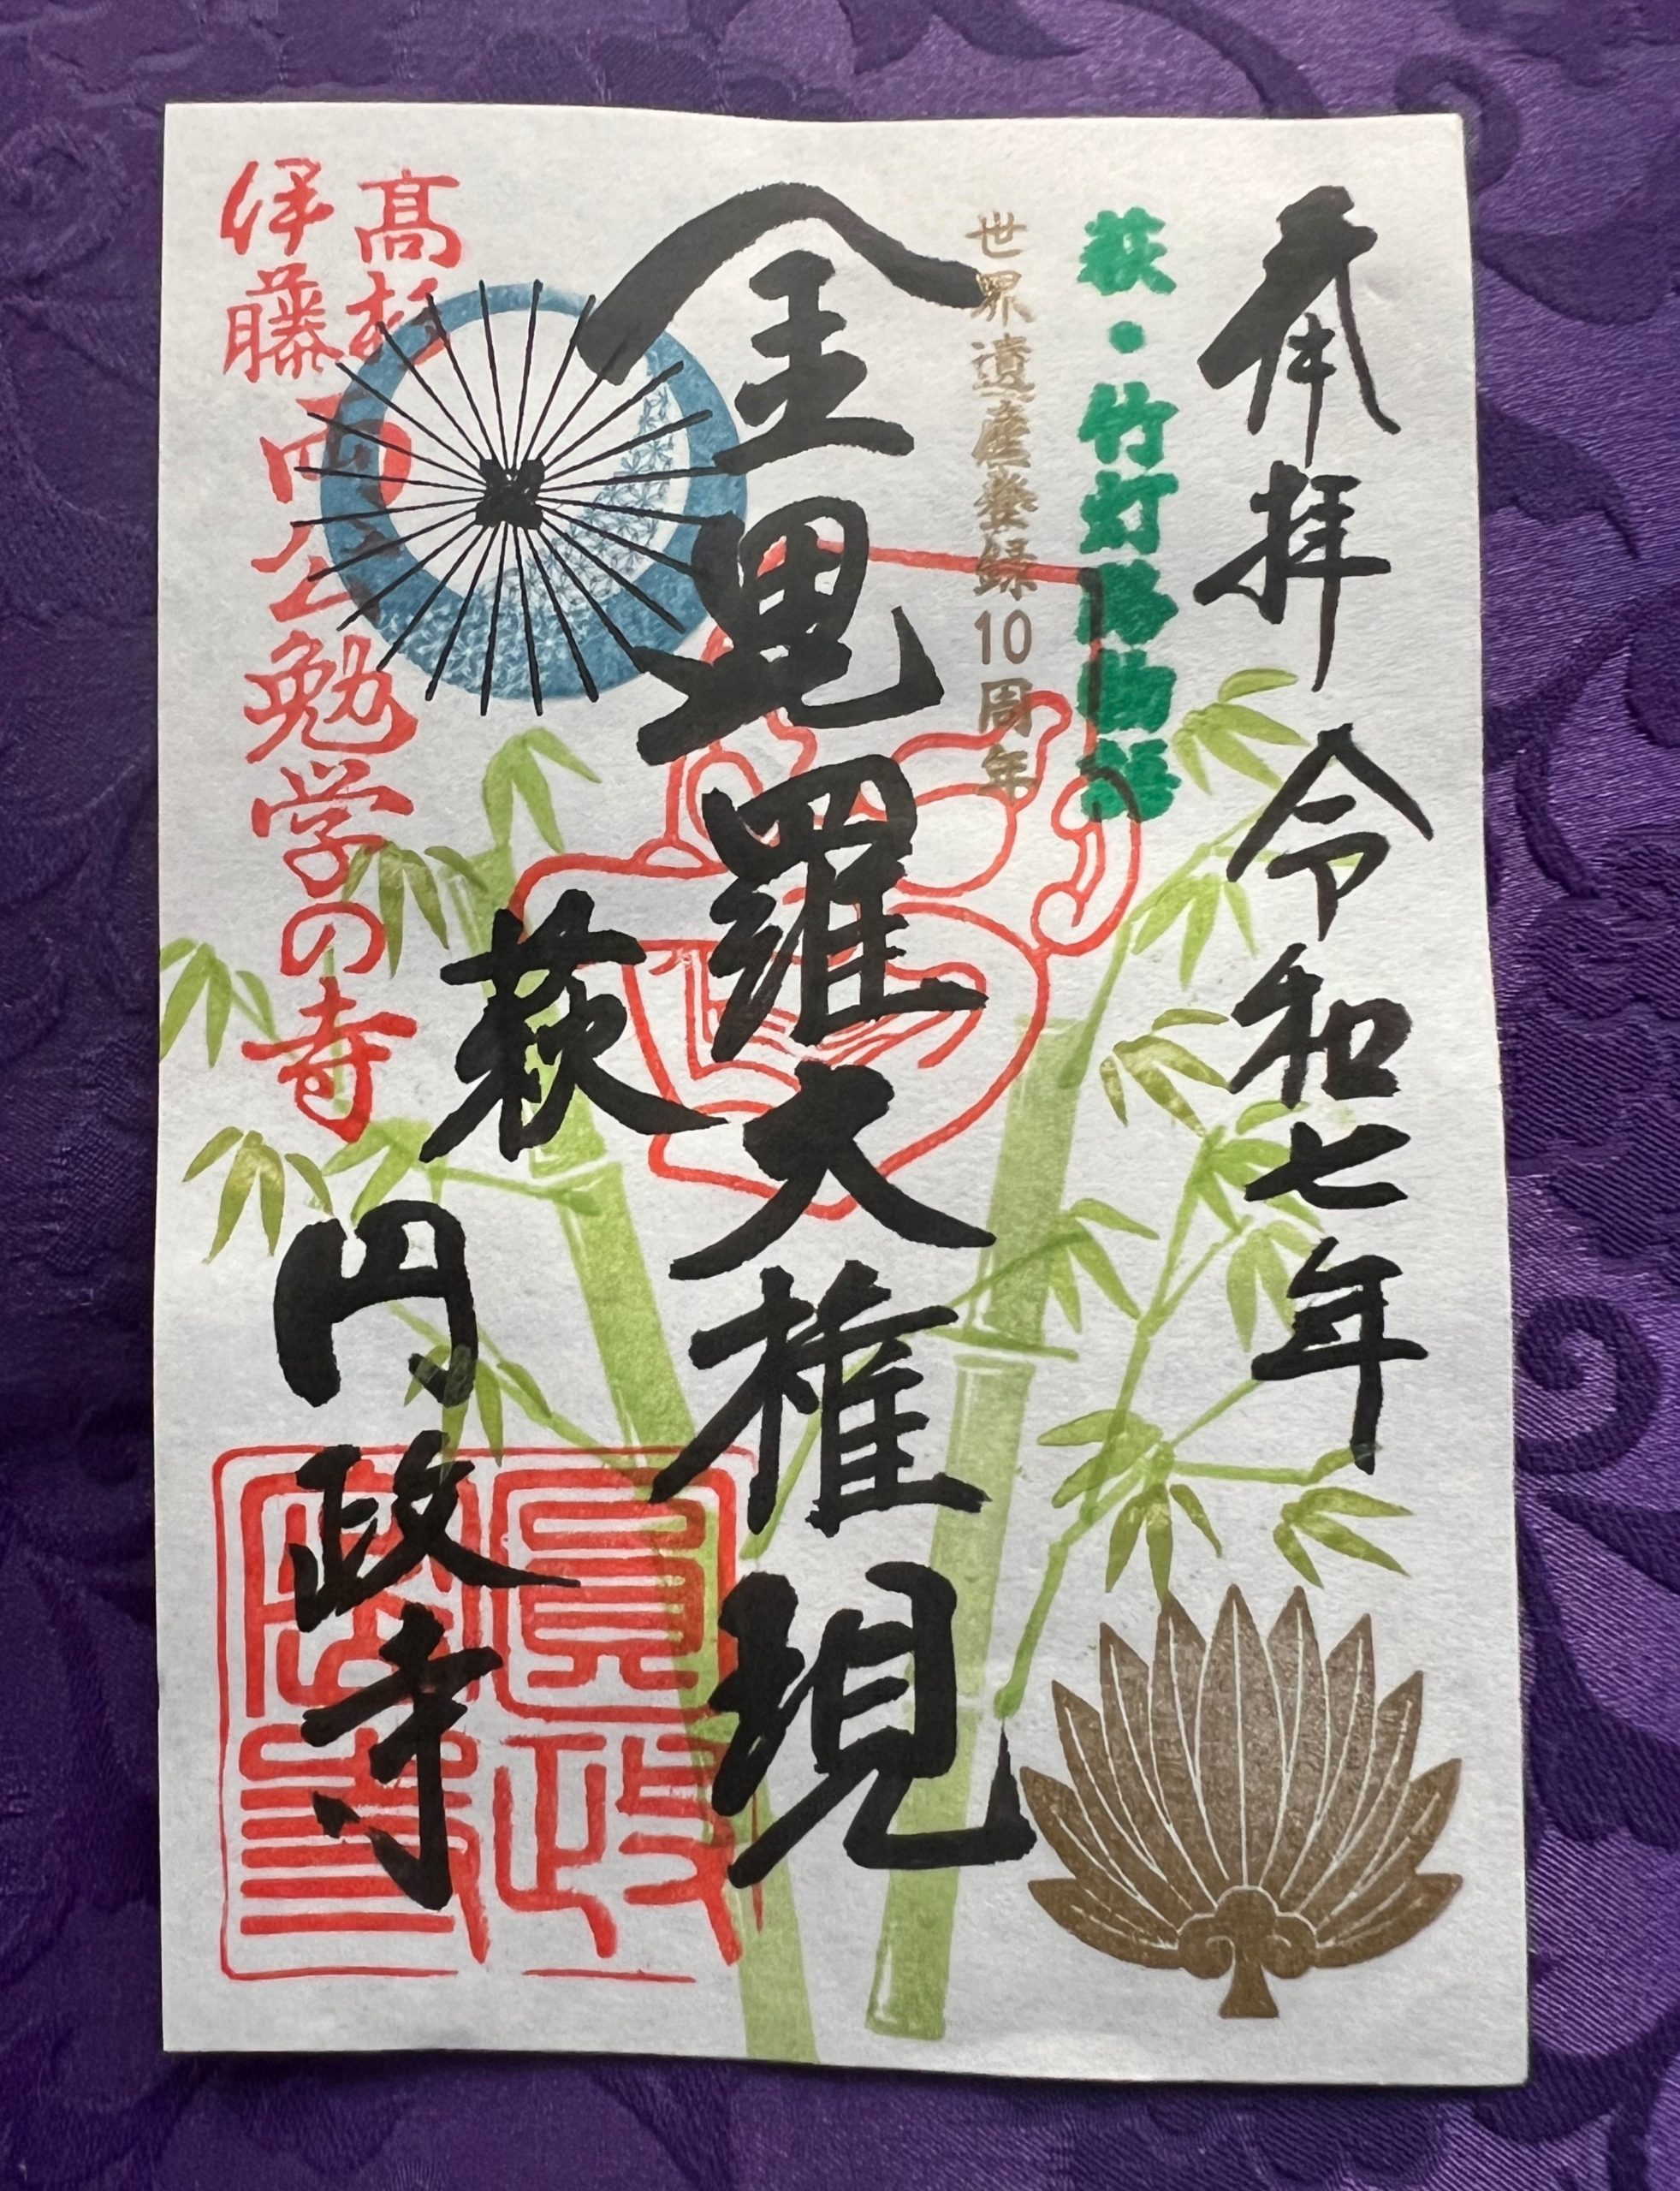 奉拝 令和七年
萩・竹灯路物語
世界遺産登録10周年
金毘羅大権現
萩 円政寺
髙杉
伊藤
両公勉学の寺
圓政寺